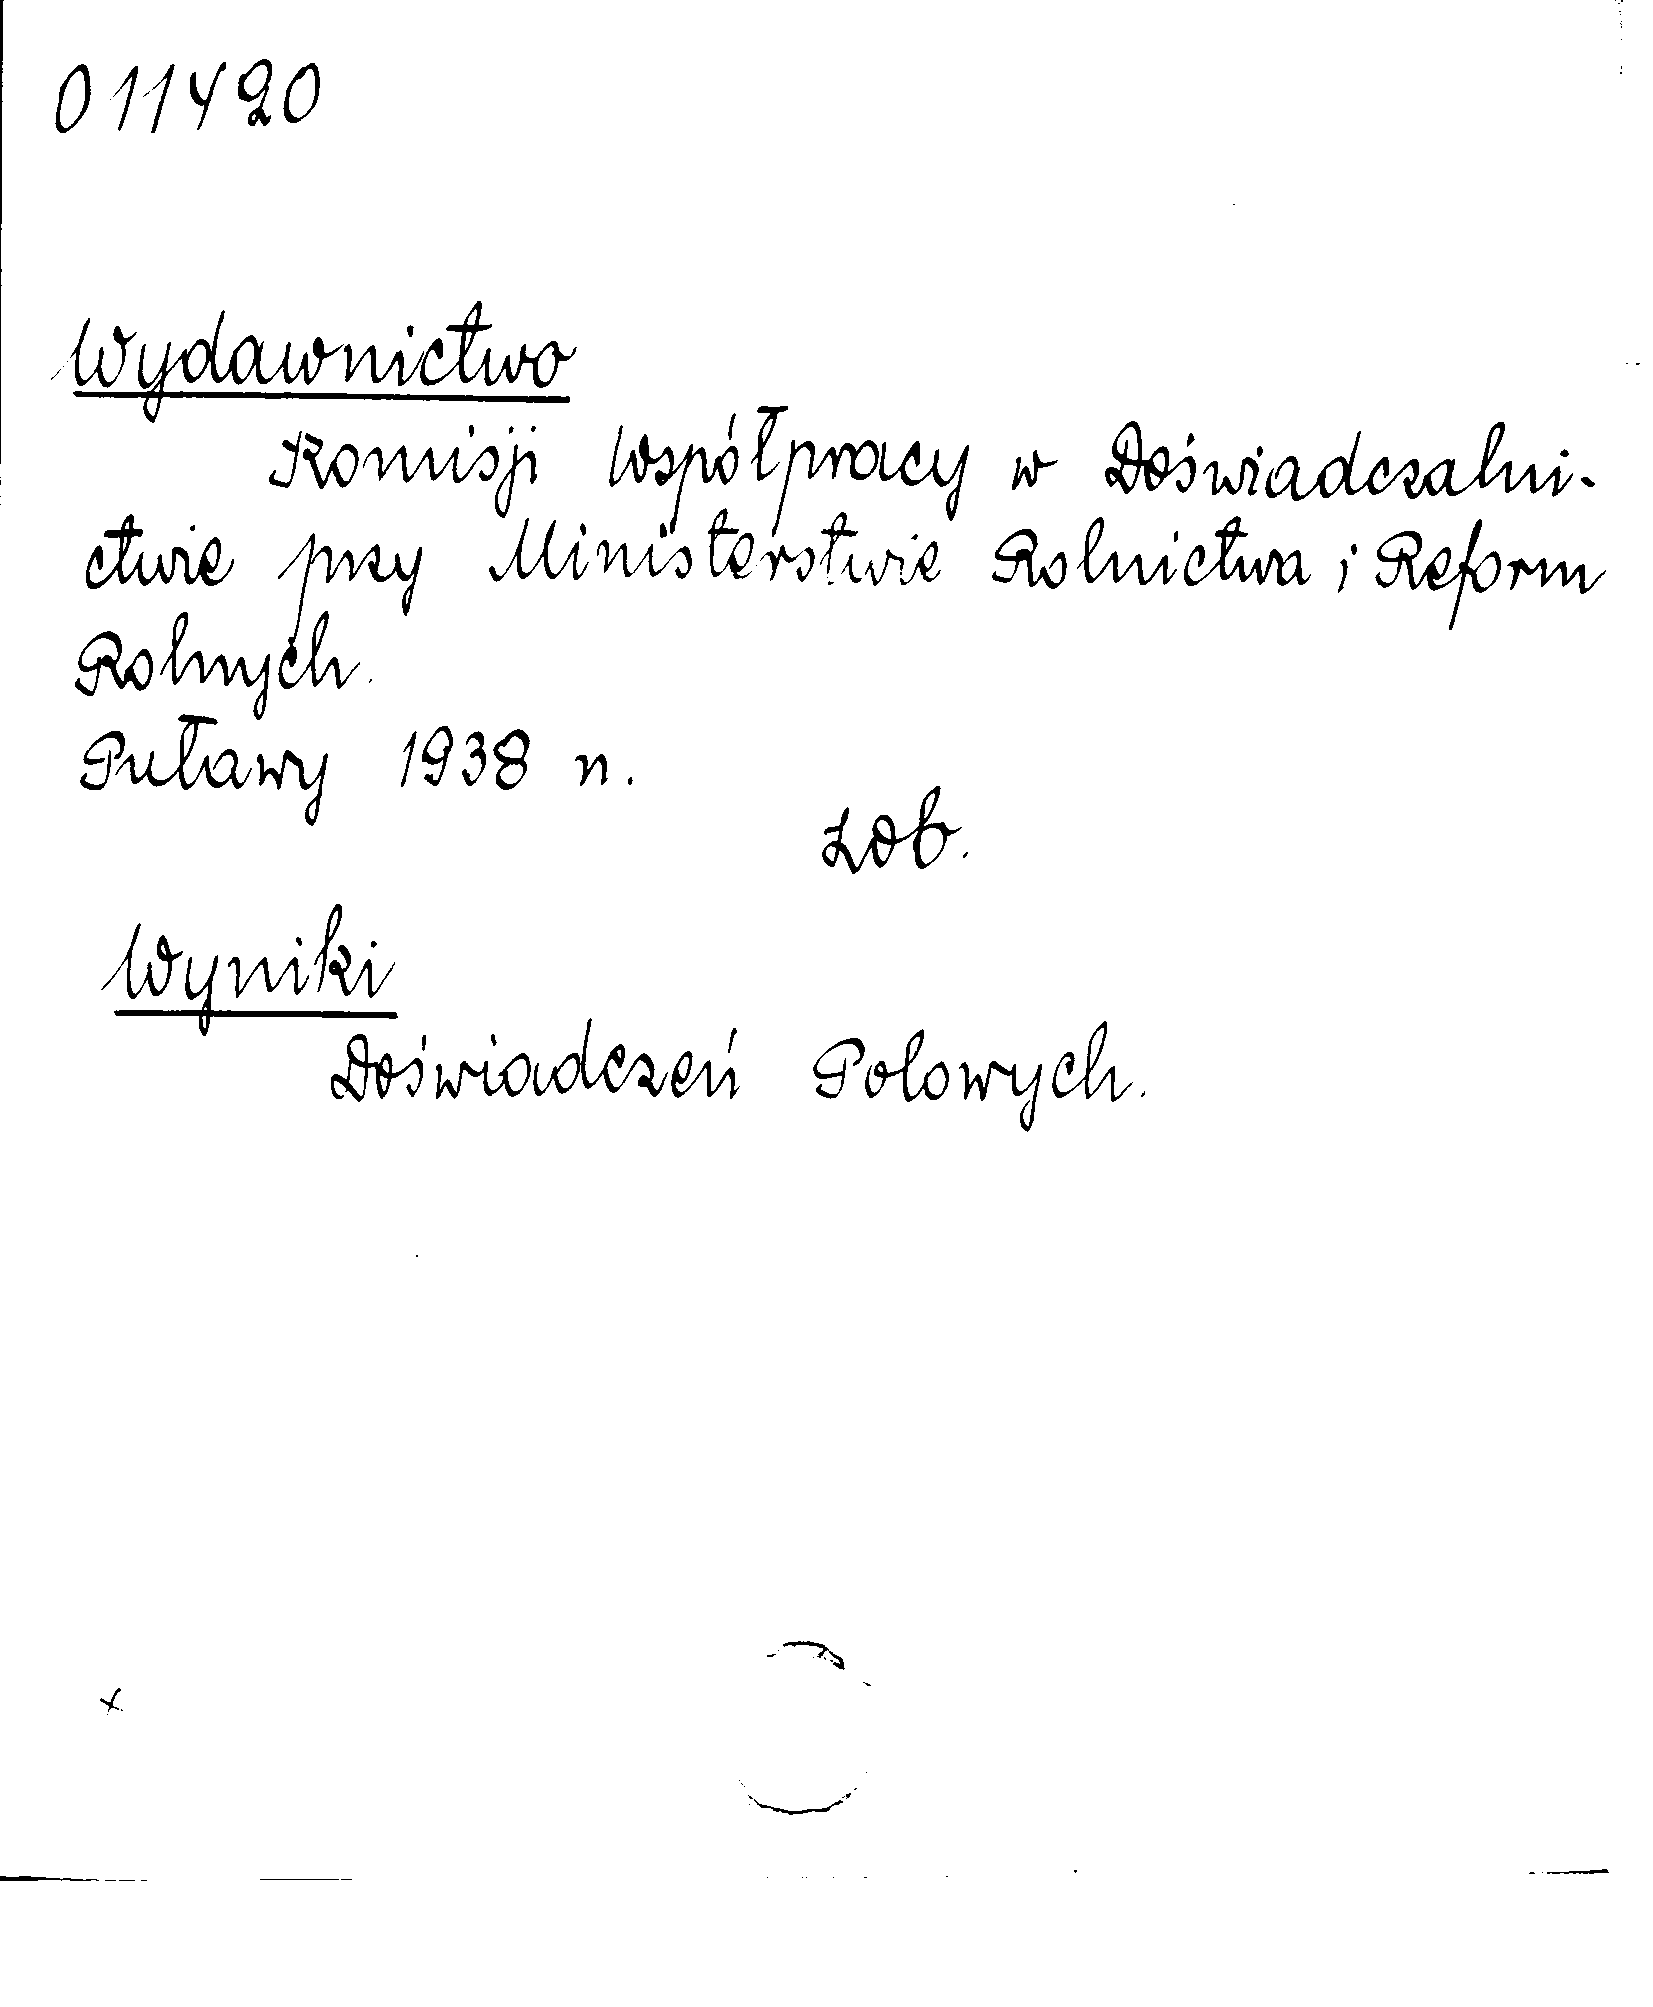 011420
Wydawnictwo
Komisji Współpracy w Doświadczalni-
ctwie przy Ministerstwie Rolnictwa i Reform
Rolnych.
Puławy 1938 n.
zob.
Wyniki
Doświadczeń Polowych.
x